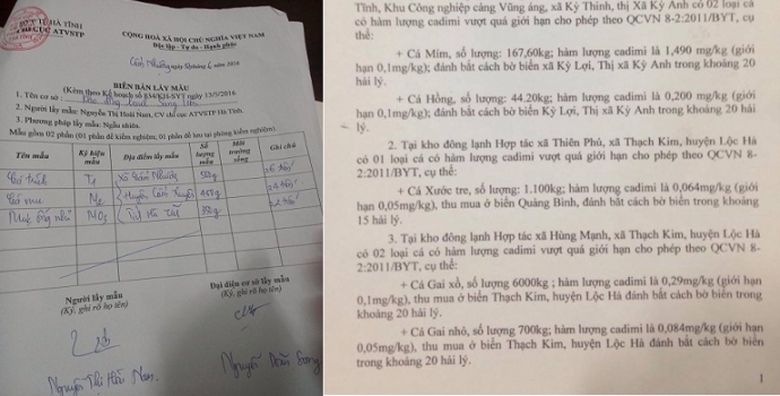 SỞ Y TẾ HÀ TĨNH
CHI CỤC ATVSTP
CỘNG HOÀ XÃ HỘI CHỦ NGHĨA VIỆT NAM
Độc lập - Tự do - Hạnh phúc
ngày tháng 6 năm 2016
BIÊN BẢN LẤY MẪU
(Kèm theo Kế hoạch số 834/KH-SYT ngày 13/5/2016)
1. Tên cơ sở: Kho đông lạnh
2. Người lấy mẫu: Nguyễn Thị Hoài Nam, CV chi cục ATVSTP Hà Tĩnh.
3. Phương pháp lấy mẫu: Ngẫu nhiên.
Mẫu gồm 02 phần (01 phần để kiểm nghiệm; 01 phần để lưu tại phòng kiểm nghiệm).
Tên mẫu Ký hiệu mẫu Địa điểm lấy mẫu Số lượng mẫu Môi trường sống Ghi chú
Cá trích T1 Xã Cẩm Nhượng
Cá M2 Huyện Cẩm Xuyên
Mực ống nhỏ MO3 Hà Tĩnh
Người lấy mẫu
(Ký, ghi rõ họ tên)
Đại diện cơ sở lấy mẫu
(Ký, ghi rõ họ tên)
Nguyễn Thị Hoài Nam
Nguyễn
Tĩnh, Khu Công nghiệp cảng Vũng áng, xã Kỳ Thinh, thị Xã Kỳ Anh có 02 loại cá
có hàm lượng cadimi vượt quá giới hạn cho phép theo QCVN 8-2:2011/BYT, cụ
thể:
+ Cá Mím, số lượng: 167,60kg; hàm lượng cadimi là 1,490 mg/kg (giới
hạn 0,1mg/kg); đánh bắt cách bờ biển xã Kỳ Lợi, Thị xã Kỳ Anh trong khoảng 20
hải lý.
+ Cá Hồng, số lượng: 44.20kg; hàm lượng cadimi là 0,200 mg/kg (giới
hạn 0,1mg/kg); đánh bắt cách bờ biển xã Kỳ Lợi, Thị xã Kỳ Anh trong khoảng 20
lý.
2. Tại kho đông lạnh Hợp tác xã Thiên Phú, xã Thạch Kim, huyện Lộc Hà
có 01 loại cá có hàm lượng cadimi vượt quá giới hạn cho phép theo QCVN 8-
2:2011/BYT, cụ thể:
+ Cá Xước tre, số lượng: 1.100kg; hàm lượng cadimi là 0,064mg/kg (giới
hạn 0,05mg/kg), thu mua ở biển Quảng Bình, đánh bắt cách bờ biển trong khoảng
15 hải lý.
3. Tại kho đông lạnh Hợp tác xã Hùng Mạnh, xã Thạch Kim, huyện Lộc Hà
có 02 loại cá có hàm lượng cadimi vượt quá giới hạn cho phép theo QCVN 8-
2:2011/BYT, cụ thể:
+ Cá Gai xổ, số lượng 6000kg ; hàm lượng cadimi là 0,29mg/kg (giới hạn
0,1mg/kg), thu mua ở biển Thạch Kim, huyện Lộc Hà đánh bắt cách bờ biển trong
khoảng 20 hải lý.
+ Cá Gai nhỏ, số lượng 700kg; hàm lượng cadimi là 0,084mg/kg (giới hạn
0,05mg/kg), thu mua ở biển Thạch Kim, huyện Lộc Hà đánh bắt cách bờ biển
trong khoảng 20 hải lý.
1